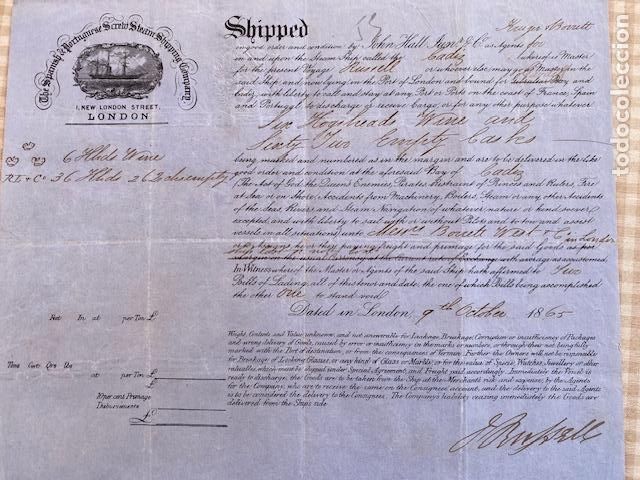 The Spanish & Portuguese Screw Steam Shipping Company,
1, NEW LONDON STREET,
LONDON
Shipped
in good order and condition by John Hall Junr. & Co. as Agents for
in and upon the Steam Ship called the Cadiz whereof is Master
for the present Voyage or whoever else may go as Master in the
said Ship and now lying in the Port of London and bound for
Cadiz, with liberty to call and stay at any Port or Ports on the coast of France, Spain
and Portugal to discharge or receive Cargo, or for any other purpose whatever
Six Hogsheads Wine and
Sixty Two Empty Casks
6 Hhds Wine
36 Hhds 26 2 empty
being marked and numbered as in the margin and are to be delivered in the like
good order and condition at the aforesaid Bay of Cadiz
(The Act of God, the Queen's Enemies, Pirates, Restraint of Princes and Rulers, Fire
at Sea or on Shore, Accidents from Machinery, Boilers, Steam or any other Accidents
of the Seas, Rivers and Steam Navigation of whatever nature or kind soever
excepted, and with liberty to sail with or without Pilots and to tow and assist
vessels in all situations,) unto Messrs West & Co in London
or to their Assigns he or they paying freight and primage for the said Goods as per
margin in the usual at the current rate of Exchange with average as accustomed.
In Witness whereof the Master or Agents of the said Ship hath affirmed to Two
Bills of Lading, all of this tenor and date, the one of which Bills being accomplished
the other one to stand void.
Dated in London, 9th October 1865
Not In at per Ton £
at per Ton £
Tons Cwt Qrs lbs
at per Ton £
10 per cent Primage
Disbursements
£
Weight, Contents and Value unknown, and not answerable for Leakage, Breakage, Corruption or insufficiency of Packages
and wrong delivery of Goods, caused by error or insufficiency in the marks or numbers, or through their not being fully
marked with the Port of destination, or from the consequences of Vermin. Further the Owners will not be responsible
for Breakage of Looking Glasses, or any kind of Glass or Marble, or for the value of Specie, Watches, Jewellery or other
valuables, which must be shipped under Special Agreement, and Freight paid accordingly. Immediately the Vessel is
ready to discharge, the Goods are to be taken from the Ship at the Merchants risk and expense, by the Agents
for the Company, who are to receive the same on the Consignees account, and the delivery to the said Agents
is to be considered the delivery to the Consignees. The Company's liability ceasing immediately the Goods are
delivered from the Ship's side.
J Russell
todocoleccion